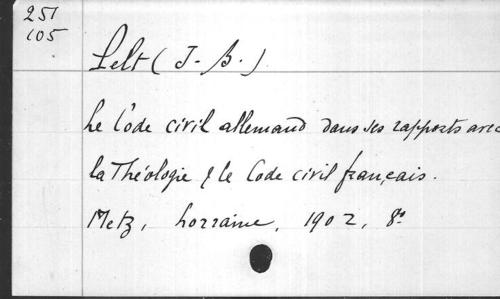 251
105
Pelt (J.-B.)
Le Code civil allemand dans ses rapports avec
la Théologie & le Code civil français.
Metz, Lorraine, 1902, 8º